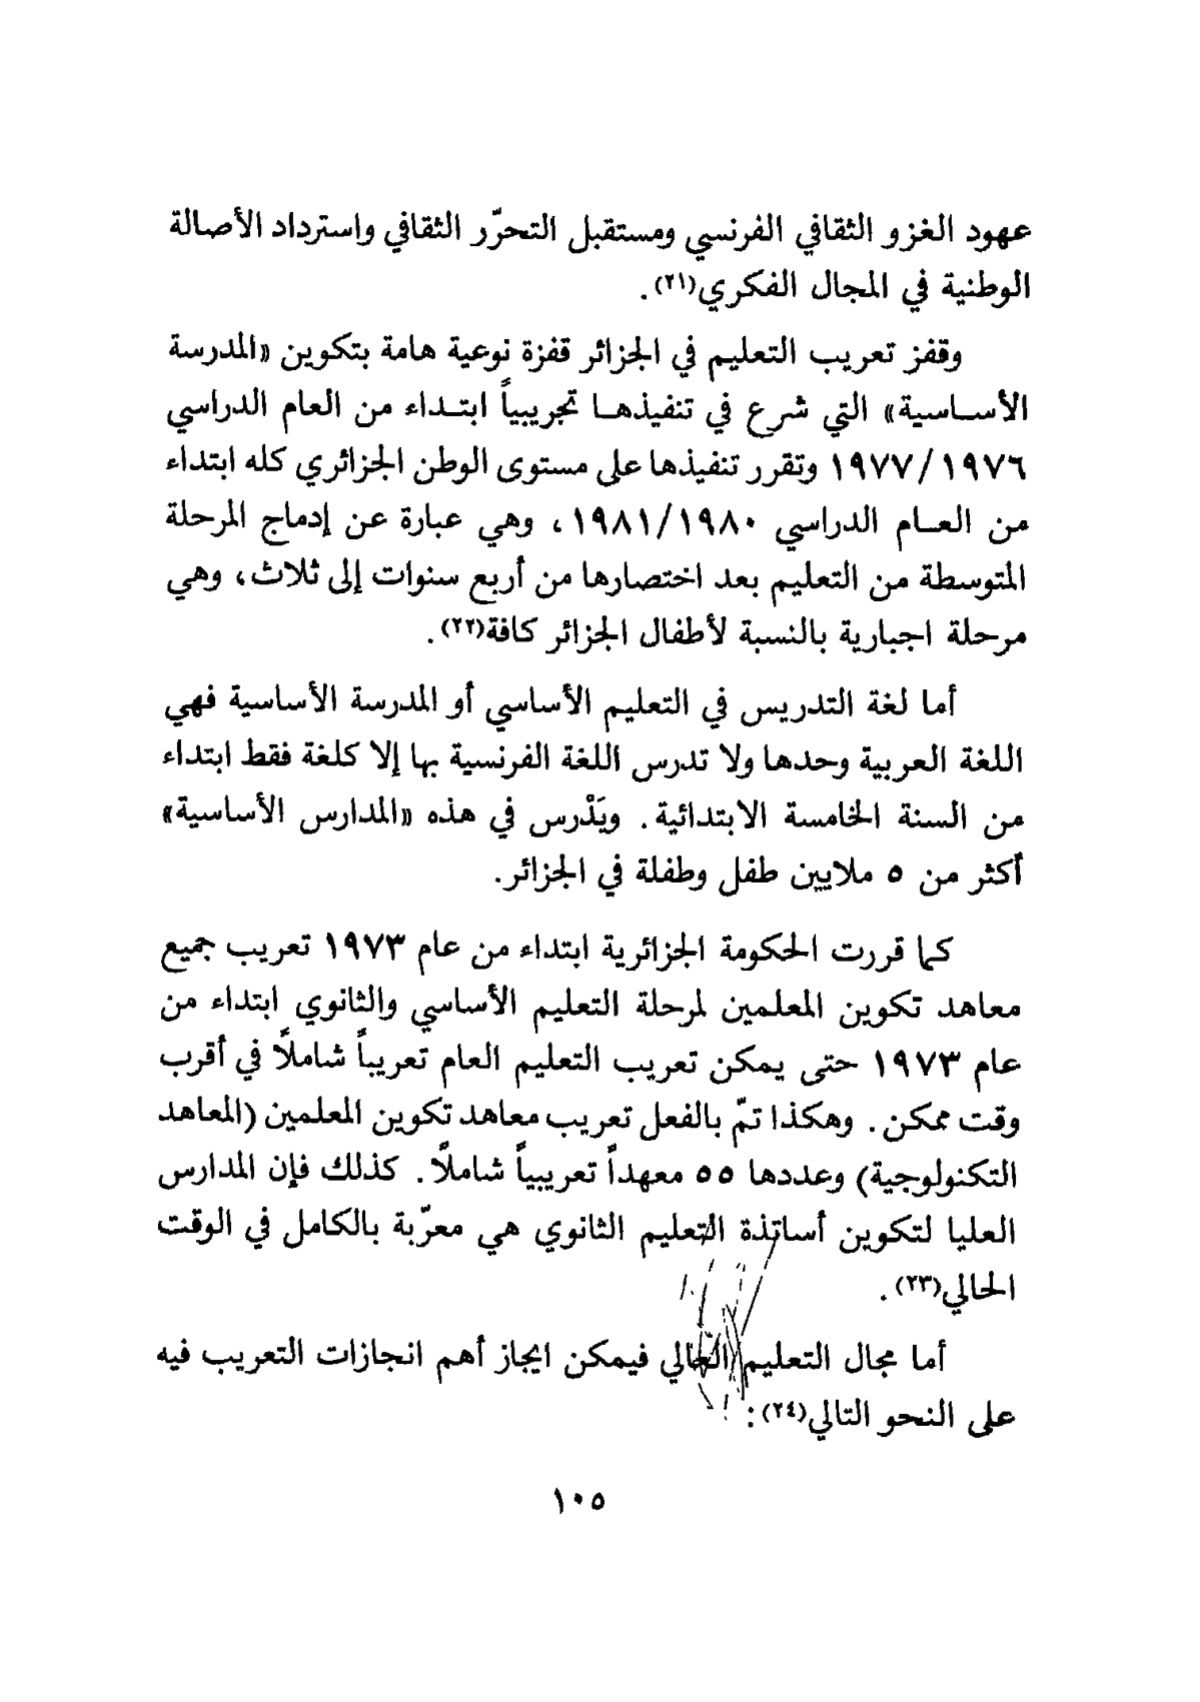 عهود الغزو الثقافي الفرنسي ومستقبل التحرّر الثقافي واسترداد الأصالة
الوطنية في المجال الفكري(٢١).
وقفز تعريب التعليم في الجزائر قفزة نوعية هامة بتكوين «المدرسة
الأساسية» التي شرع في تنفيذها تجريبياً ابتداء من العام الدراسي
١٩٧٧/١٩٧٦ وتقرر تنفيذها على مستوى الوطن الجزائري كله ابتداء
من العام الدراسي ١٩٨١/١٩٨٠، وهي عبارة عن إدماج المرحلة
المتوسطة من التعليم بعد اختصارها من أربع سنوات إلى ثلاث، وهي
مرحلة اجبارية بالنسبة لأطفال الجزائر كافة(٢٢).
أما لغة التدريس في التعليم الأساسي أو المدرسة الأساسية فهي
اللغة العربية وحدها ولا تدرس اللغة الفرنسية بها إلا كلغة فقط ابتداء
من السنة الخامسة الابتدائية. ويَدْرس في هذه «المدارس الأساسية»
أكثر من ٥ ملايين طفل وطفلة في الجزائر.
كما قررت الحكومة الجزائرية ابتداء من عام ١٩٧٣ تعريب جميع
معاهد تكوين المعلمين لمرحلة التعليم الأساسي والثانوي ابتداء من
عام ١٩٧٣ حتى يمكن تعريب التعليم العام تعريباً شاملاً في أقرب
وقت ممكن. وهكذا تمّ بالفعل تعريب معاهد تكوين المعلمين (المعاهد
التكنولوجية) وعددها ٥٥ معهداً تعريبياً شاملاً. كذلك فإن المدارس
العليا لتكوين أساتذة التعليم الثانوي هي معرّبة بالكامل في الوقت
الحالي(٢٣).
أما مجال التعليم العالي فيمكن ايجاز أهم انجازات التعريب فيه
على النحو التالي(٢٤):
١٠٥